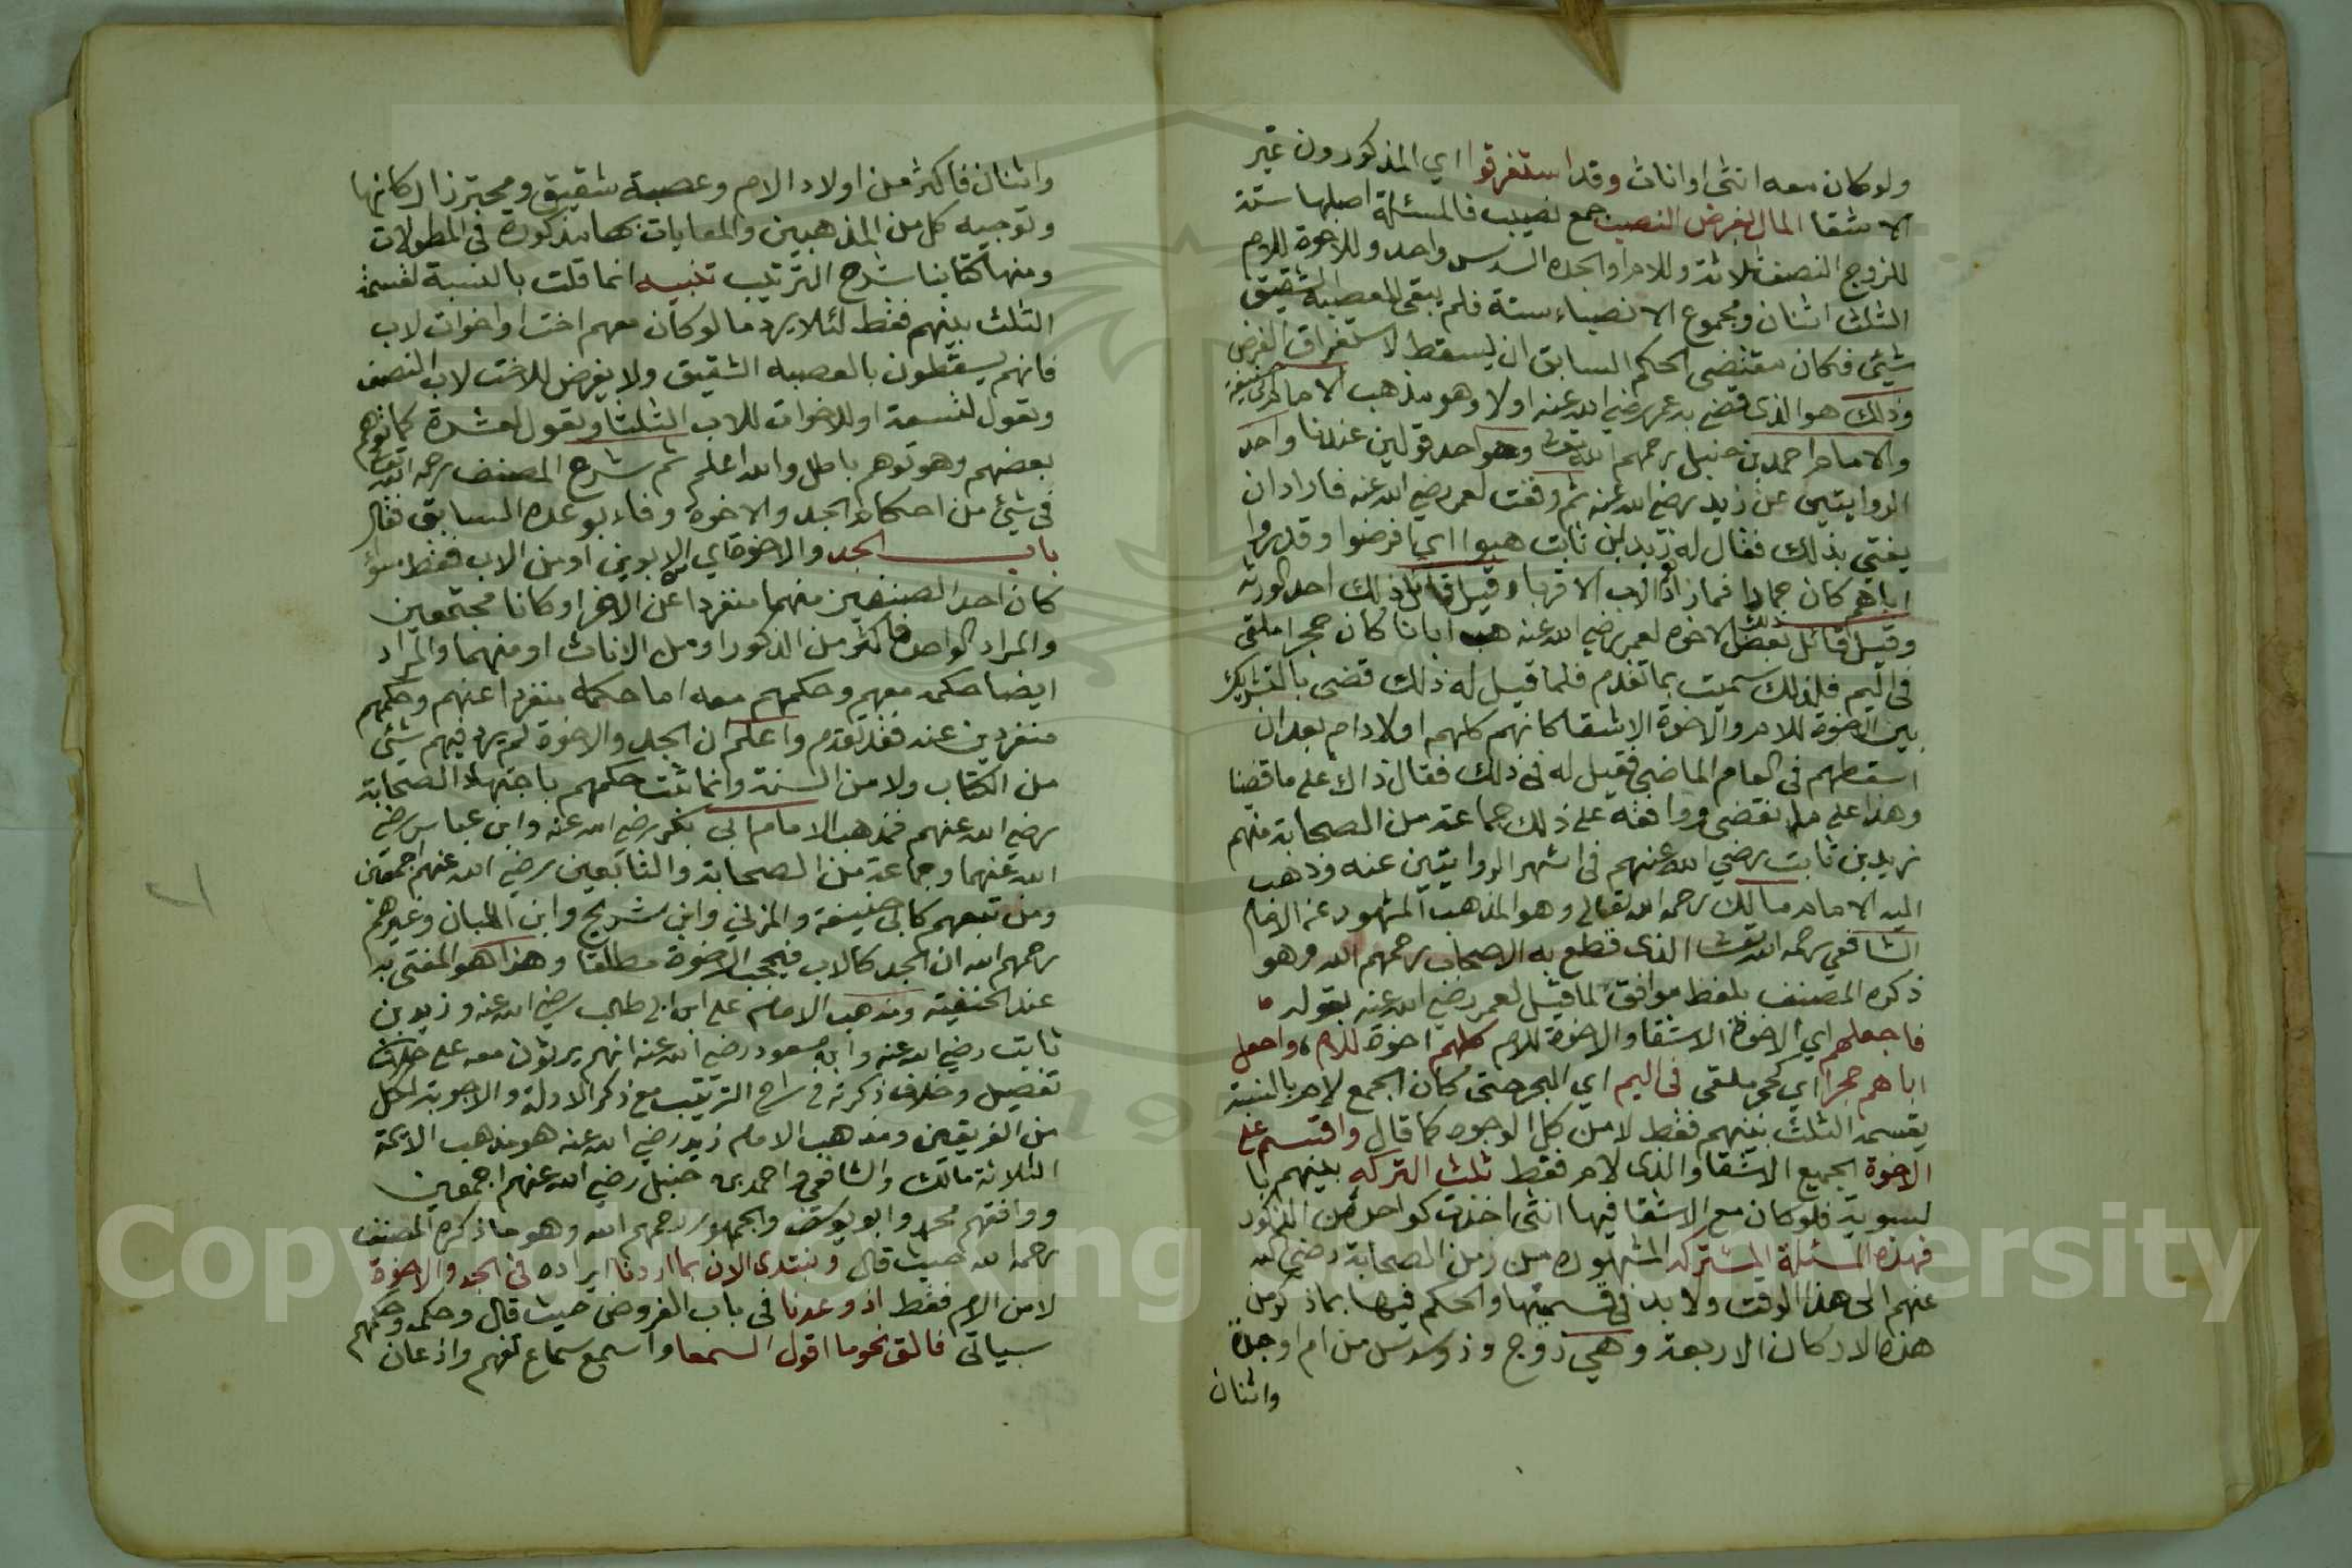 ولو كان معه انثى او اناث وقد استغرقوا اي المذكورون غير
الاشقا المال بفرض النصب جمع نصيب فالمسئلة اصلها ستة
للزوج النصف ثلاثة وللام او الجده السدس واحد وللاخوة للام
الثلث اثنان ومجموع الانصباء ستة فلم يبقى للعصبة الشقيق
شيئ فكان مقتضى الحكم السابق ان يسقط لاستغراق الفرض
وذلك هو الذى قضى به عمر رضي الله عنه اولا وهو مذهب الامام ابي حنيفة
والامام احمد بن حنبل رحمهم الله تعالى وهو احد قولين عندنا واحد
الروايتين عن زيد رضي الله عنه ثم وقعت لعمر رضي الله عنه فاراد ان
يفتي بذلك فقال له زيد بن ثابت هبوا اي افرضوا وقدروا
اباهم كان حمارا فما زاد الاب الا قربا وقيل قائل ذلك احد الورثه
وقيل قائل ذلك بعض الاخوه لعمر رضي الله عنه هب ابانا كان حجرا ملقى
في اليم فلذلك سميت بما تقدم فلما قيل له ذلك قضى بالتشريك
بين الاخوة للام والاخوة الاشقا كانهم كلهم اولاد ام بعد ان
اسقطهم في العام الماضي فقيل له في ذلك فقال ذاك على ما قضينا
وهذا على ما نقضي ووافقه على ذلك جماعة من الصحابة منهم
زيد بن ثابت رضي الله عنهم في اشهر الروايتين عنه وذهب
اليه الامام مالك رحمه الله تعالى وهو المذهب المشهور عن الامام
الشافعي رحمه الله تعالى الذى قطع به الاصحاب رحمهم الله وهو
ذكره المصنف بلفظ موافق لما قيل لعمر رضي الله عنه بقوله
فاجعلهم اي الاخوة الاشقا والاخوة للام كلهم اخوة للام، واجعل
اباهم حجرا اي كحجر ملقى في اليم اي البحر حتى كان الجمع لام بالنسبة
يقسمة الثلث بينهم فقط لا من كل الوجوه كما قال واقتسم على
الاخوة الجميع الاشقا والذى لام فقط ثلث التركه بينهم با
لسوية فلو كان مع الاشقا فيها انثى اخذت كواحد من الذكور
فهذه المسئلة المشتركه المشهوره من زمن الصحابة رضي الله
عنهم الى هذا الوقت ولا بد في قسمتها والحكم فيها بما ذكر من
هذه الاركان الاربعة وهي زوج وذو سدس من ام او جدة
واثنان
واثنان فاكثر من اولاد الام وعصبة شقيق ومحترزا اركانها
وتوجيه كل من المذهبين والمعايات بها مذكورة في المطولات
ومنها كتابنا شرح الترتيب تنبيه انما قلت بالنسبة لقسمة
الثلث بينهم فقط لئلا يرد ما لو كان معهم اخت او اخوات لاب
فانهم يسقطون بالعصبه الشقيق ولا يفرض للاخت لاب النصف
وتعول لتسعة او للاخوات للاب الثلثا وتعول لعشرة كما توهم
بعضهم وهو توهم باطل والله اعلم ثم شرع المصنف رحمه الله تعالى
في شيئ من احكام الجد والاخوة وفاء بوعده السابق فقال
باب الجد والاخوة اي من الابوين او من الاب فقط سواء
كان احد الصنفين منهما منفردا عن الاخر او كانا مجتمعين
والمراد الواحد فاكثر من الذكور او من الاناث او منهما والمراد
ايضا حكمه معهم وحكمهم معه اما حكمه منفردا عنهم وحكمهم
منفردين عنه فقد تقدم واعلم ان الجد والاخوة لم يرد فيهم شيئ
من الكتاب ولا من السنة وانما ثبت حكمهم باجتهاد الصحابة
رضي الله عنهم فمذهب الامام ابي بكر رضي الله عنه وابن عباس رضي
الله عنهما وجماعة من الصحابة والتابعين رضي الله عنهم اجمعين
ومن تبعهم كابي حنيفة والمزني وابن شريح وابن اللبان وغيرهم
رحمهم الله ان الجد كالاب فيحجب الاخوة مطلقا وهذا هو المفتى به
عند الحنفية ومذهب الامام على ابن ابي طالب رضي الله عنه وزيد بن
ثابت رضي الله عنه وابن مسعود رضي الله عنه انهم يرثون معه على خلاف
تفصيل وخلاف ذكرته في شرح الترتيب مع ذكر الادلة والاجوبة لكل
من الفريقين ومذهب الامام زيد رضي الله عنه هو مذهب الائمة
الثلاثة مالك والشافعي واحمد بن حنبل رضي الله عنهم اجمعين
ووافقهم محمد وابو يوسف والجمهور رحمهم الله وهو ما ذكره المصنف
رحمه الله حيث قال ونبتدى الان بما اردنا ايراده في الجد والاخوة
لا من الام فقط اذ وعدنا في باب الفروض حيث قال وحكمه وحكمهم
سياتي فالق نحو ما اقول السمعا واسمع سماع تفهم واذعان